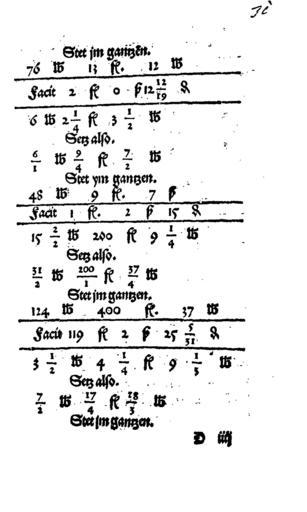 Stet jm gantzen.
76 ℔ 13 fl. 12 ℔
Facit 2 fl 0 ß 12 12/19 ₰
6 ℔ 2 1/4 fl 3 1/2 ℔
Setz also.
6/1 ℔ 9/4 fl 7/2 ℔
Stet ym gantzen.
48 ℔ 9 fl. 7 ß
Facit 1 fl. 2 ß 15 ₰
15 2/2 ℔ 200 fl 9 1/4 ℔
Setz also.
31/2 ℔ 200/1 fl 37/4 ℔
Stet jm gantzen.
124 ℔ 400 fl. 37 ℔
Facit 119 fl 2 ß 25 5/31 ₰
3 1/2 ℔ 4 1/4 fl 9 1/3 ℔
Setz also.
7/2 ℔ 17/4 fl 28/3 ℔
Stet jm gantzen.
D iiij